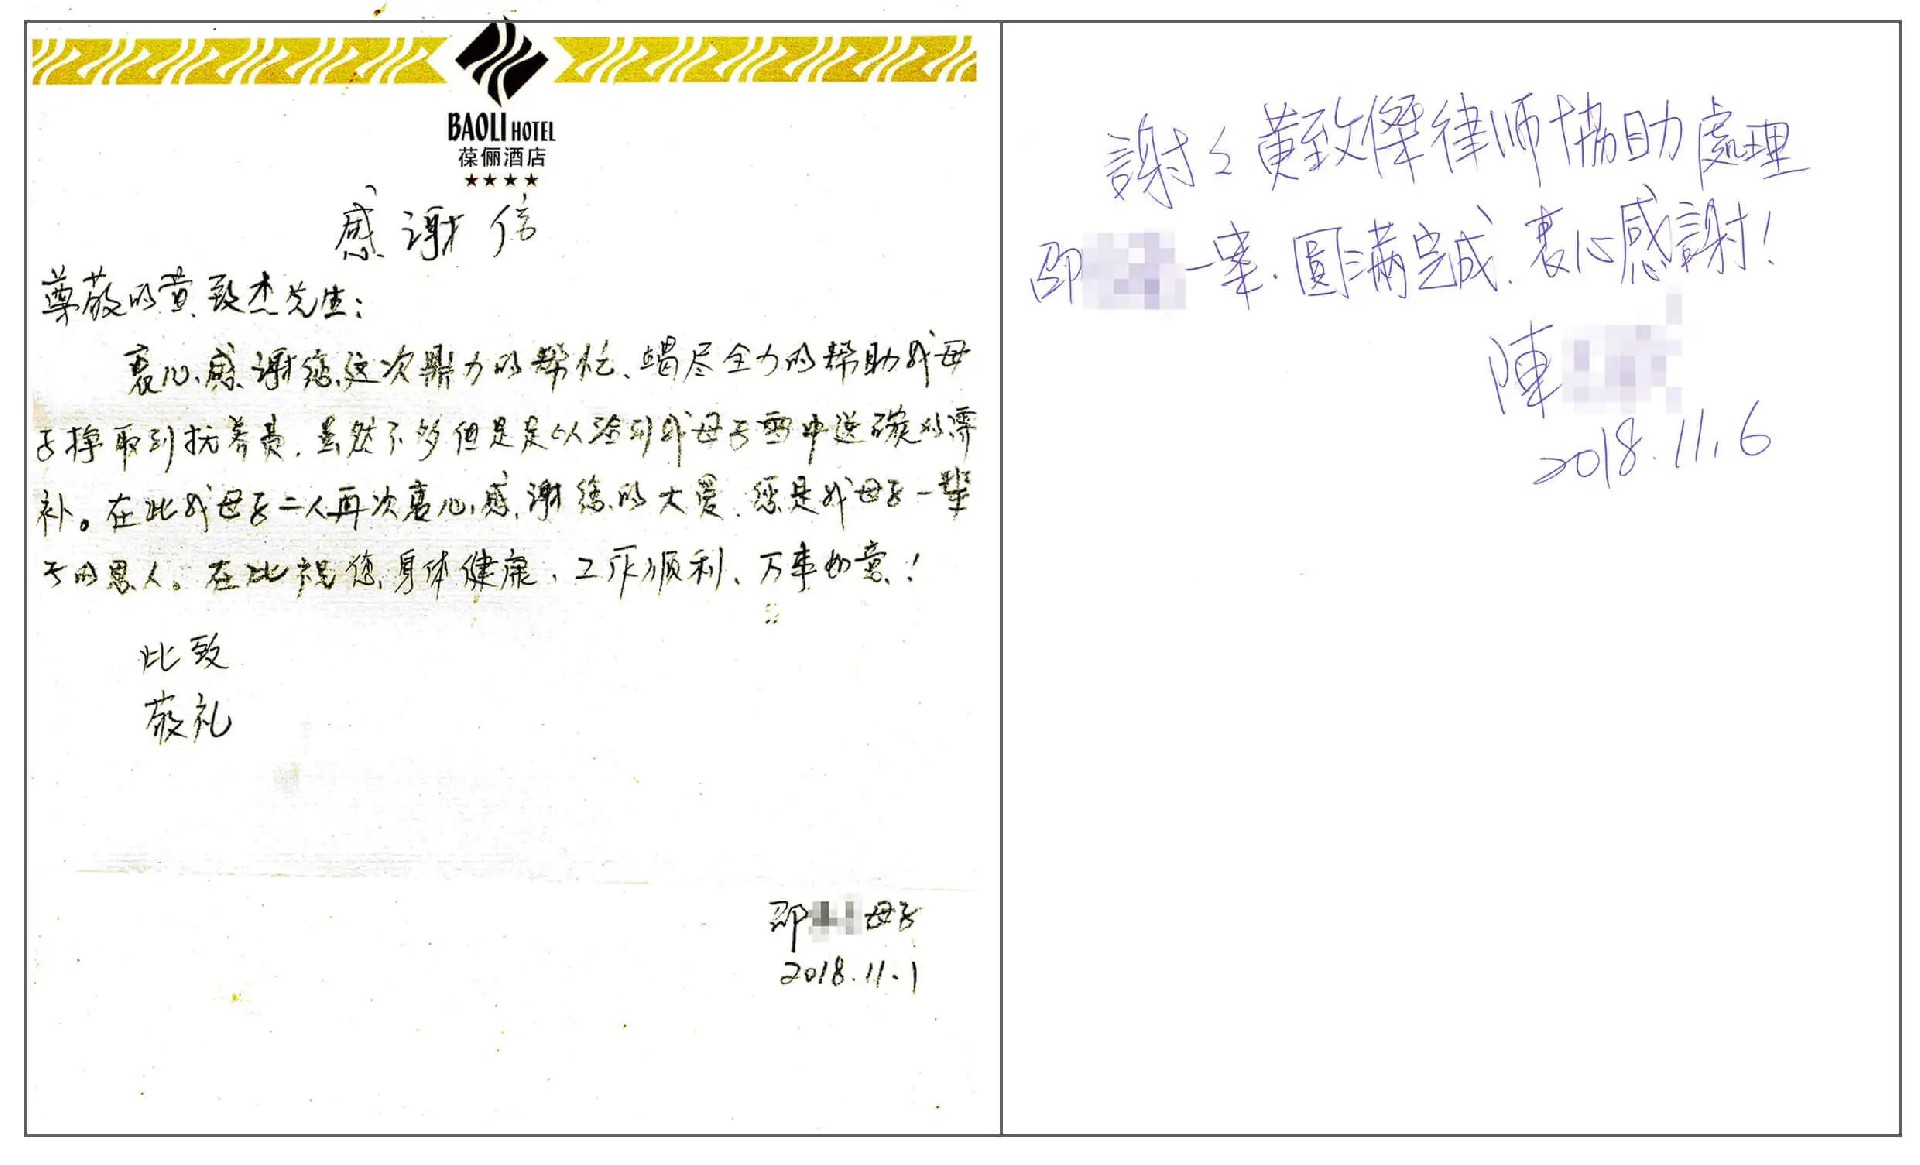 BAOLI HOTEL
葆俪酒店
感谢信
尊敬的黄致杰先生：
衷心感谢您这次鼎力的帮忙、竭尽全力的帮助我母
子挣取到抚养费，虽然不多但是足以给到我母子雪中送碳的济
补。在此我母子二人再次衷心感谢您的大爱，您是我母子一辈
子的恩人。在此祝您身体健康，工作顺利、万事如意！
此致
敬礼
邵 母子
2018.11.1
謝々黃致傑律师協助處理
邵 一案，圓滿完成，衷心感謝！
陳
2018.11.6